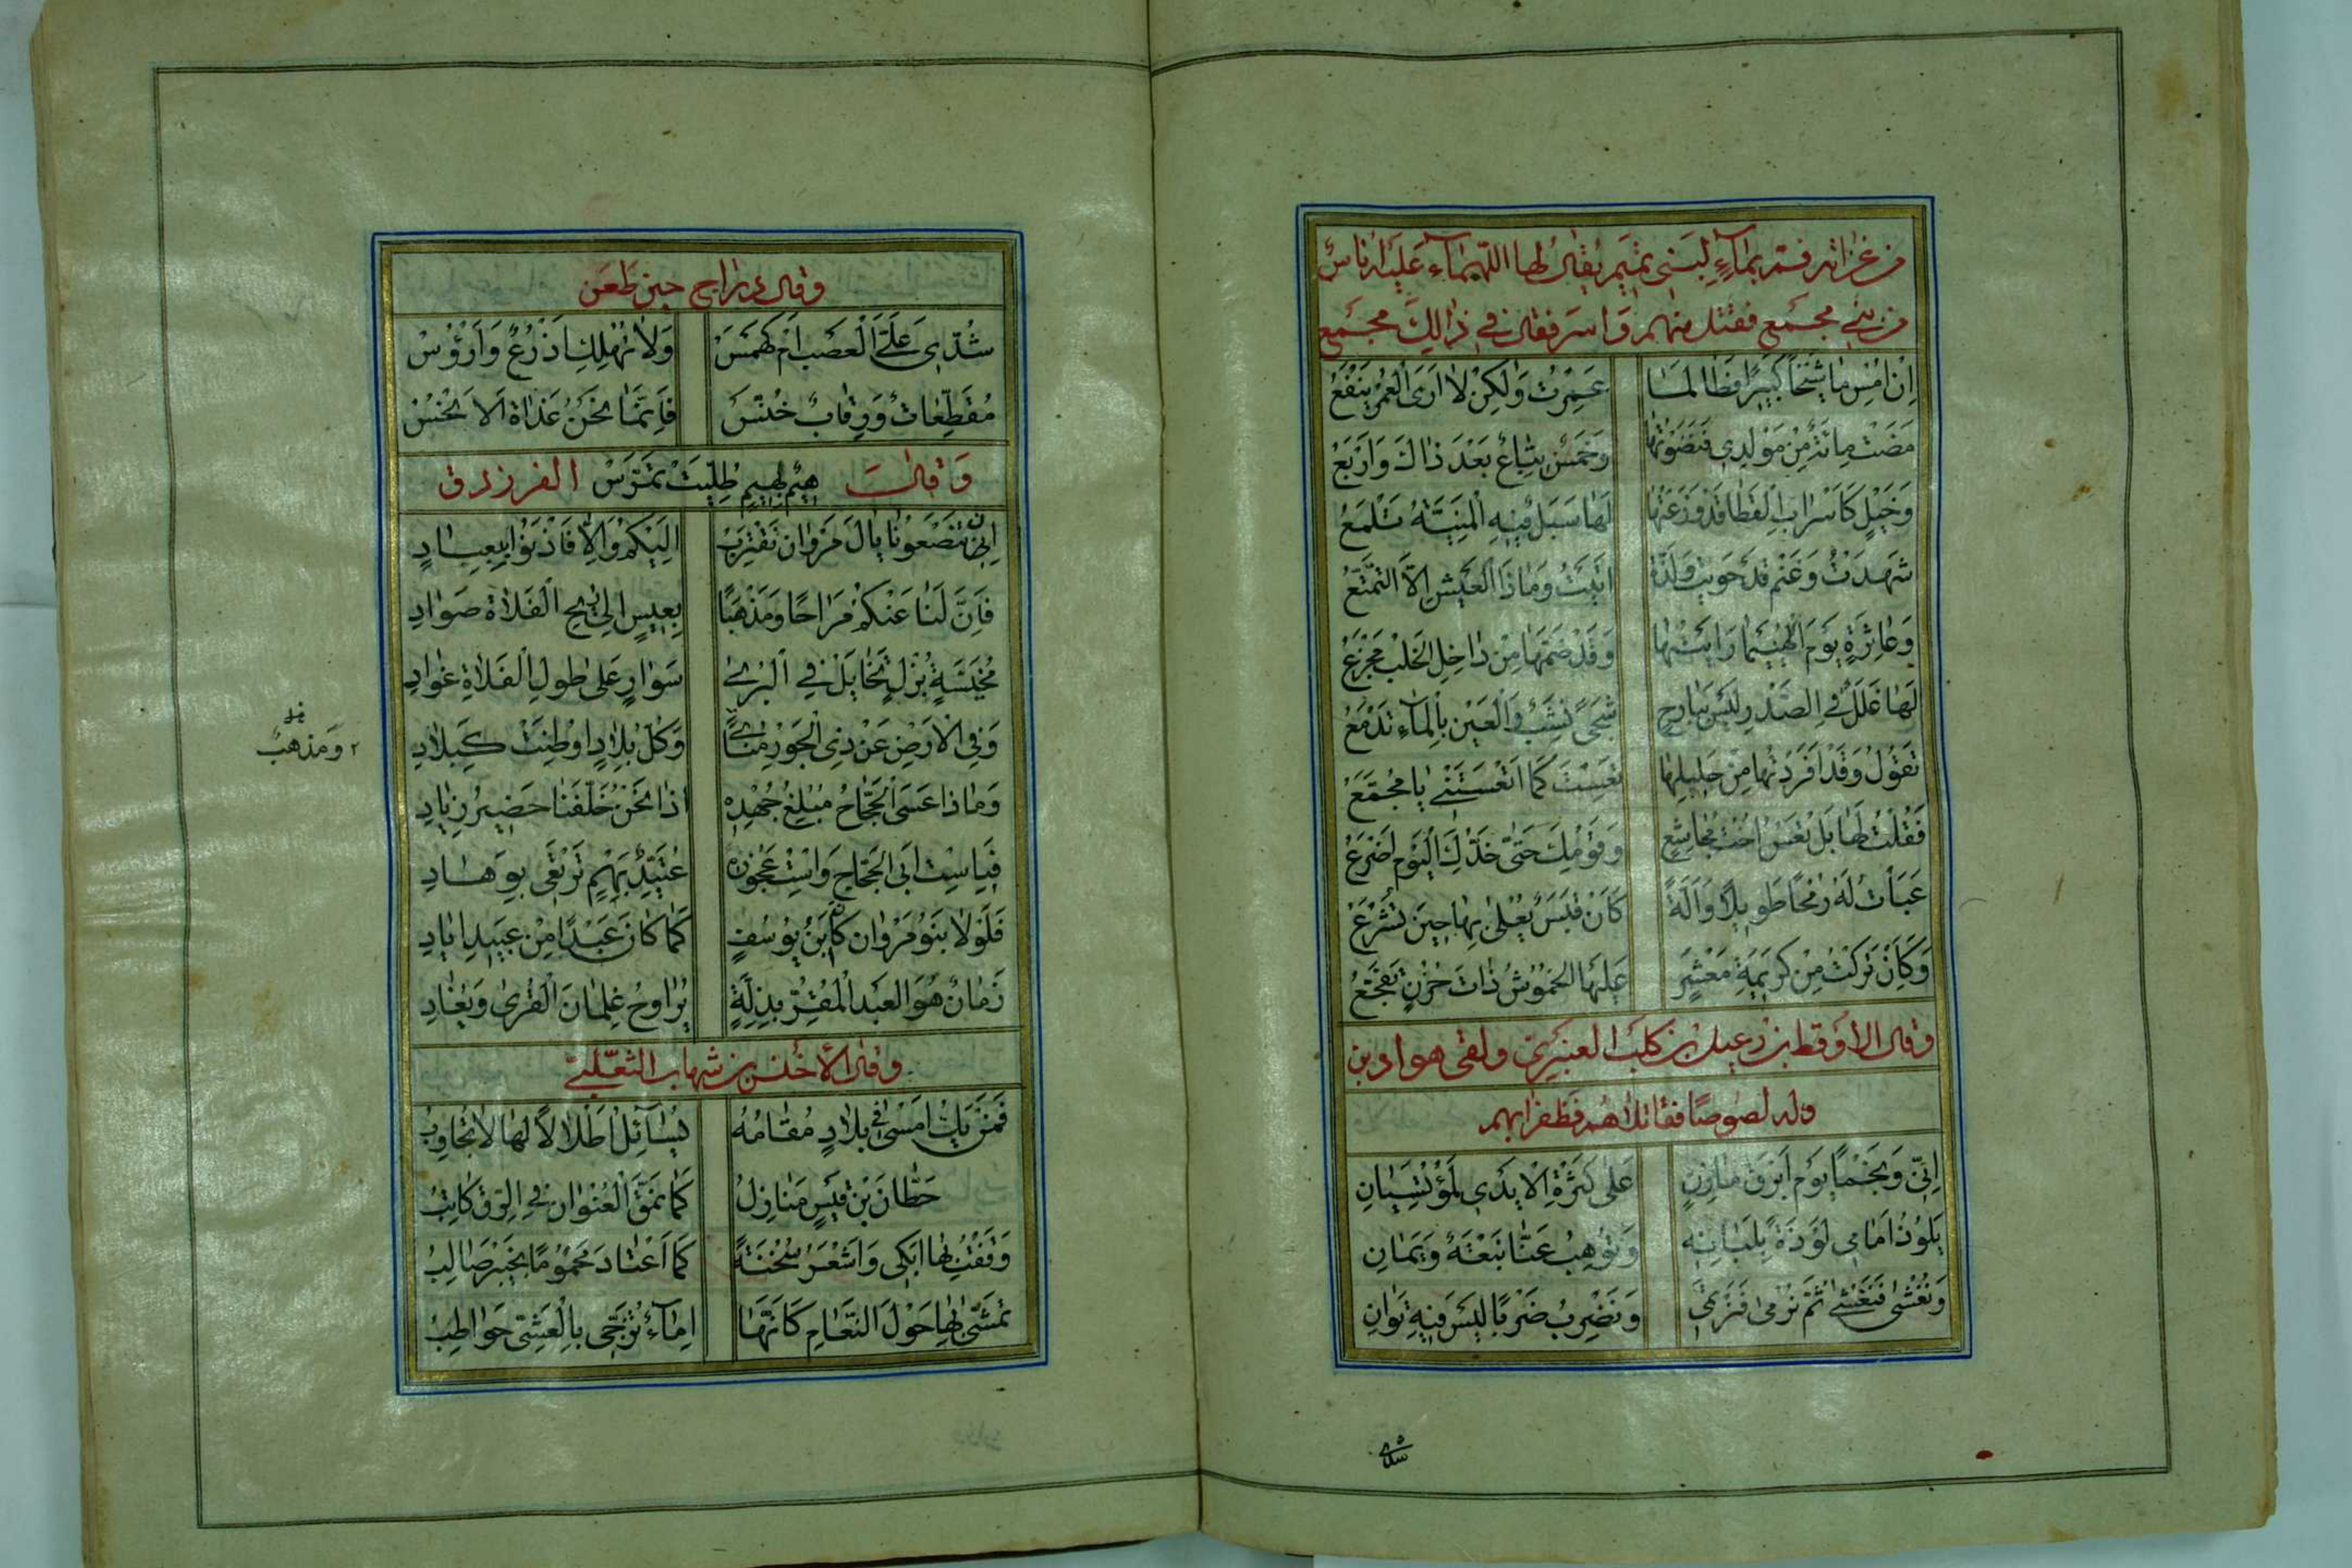 من غزاته فمر بماء لبنى تميم يقال لها اللهيماء عليه اناس
من بنى مجمع فقتل منهم واسر فقال فى ذالك مجمع
اِنْ اَمْسِ مَا شَيْخًا كَبِيرًا فَطَالَمَا عَمِرْتُ وَلٰكِنْ لَا اَرَى الْعُمْرَ يَنْفَعُ
مَضَتْ مِائَةٌ مِنْ مَوْلِدِى فَنَضَوْتُهَا وَخَمْسٌ تِبَاعٌ بَعْدَ ذَاكَ وَاَرْبَعُ
وَخَيْلٍ كَاَسْرَابِ الْقَطَا قَدْ وَزَعْتُهَا لَهَا سَبَلٌ فِيهِ الْمَنِيَّةُ تَلْمَعُ
شَهِدْتُ وَغُنْمٍ قَدْ حَوَيْتُ وَلَذَّةٍ اَتَيْتُ وَمَاذَا الْعَيْشُ اِلَّا التَّمَتُّعُ
وَعَاثِرَةٍ يَوْمَ الْهُيَيْمَا رَاَيْتُهَا وَقَدْ ضَمَّهَا مِنْ دَاخِلِ الْخِلْبِ مَجْزَعُ
لَهَا غَلَلٌ فِى الصَّدْرِ لَيْسَ بِبَارِحٍ شَجًى نَشَبٌ وَالْعَيْنُ بِالْمَاءِ تَدْمَعُ
تَقُولُ وَقَدْ اَفْرَدْتُهَا مِنْ حَلِيلِهَا تَعِسْتَ كَمَا اَتْعَسْتَنِى يَا مُجَمِّعُ
فَقُلْتُ لَهَا بَلْ تَعْسَ اُخْتِ مُجَاشِعٍ وَقَوْمِكِ حَتَّى خَدُّكِ الْيَوْمَ اَضْرَعُ
عَبَأْتُ لَهُ رُمْحًا طَوِيلًا وَاَلَّةً كَاَنْ قَبَسٌ يُعْلَى بِهَا حِينَ تُشْرَعُ
وَكَائِنْ تَرَكْتُ مِنْ كَرِيمَةِ مَعْشَرٍ عَلَيْهَا الْخُمُوشُ ذَاتَ حُزْنٍ تَفَجَّعُ
وقال الاوقط بن دعبل بن كلب العنبرى ولقى هو ادبن
وله لصوصًا فقاتلاهم فظفرا بهم
اِنِّى وَنَجْمًا يَوْمَ اَبْرَقِ مَازِنٍ عَلَى كَثْرَةِ الْاَيْدِى لَمُؤْتَسِيَانِ
يَلُوذُ اَمَامِى لَوْذَةً بِلَبَانِهِ وَتُوهِبُ عَنَّا نَبْعَةٌ وَيَمَانِ
وَنُغْشَى فَنَغْشَى ثُمَّ نُرْمَى فَنَرْتَمِى وَنَضْرِبُ ضَرْبًا لَيْسَ فِيهِ تَوَانِ
وقال دراج حين طعن
شُدِّى عَلَىَّ الْعَصْبَ اُمَّ كَهْمَسْ وَلَا تَهُلْكِ اَذْرُعٌ وَاَرْؤُسْ
مُقَطَّعَاتٌ وَرِقَابٌ خُنَّسْ فَاِنَّمَا نَحْنُ غَدَاةَ الْاَنْحُسْ
هِيمٌ بِهِيمٍ طُلِيَتْ تَمَرَّسْ
وَقَالَ الفرزدق
اِنْ تُنْصِفُونَا يَالَ مَرْوَانَ نَقْتَرِبْ اِلَيْكُمْ وَاِلَّا فَاْذَنُوا بِبِعَادِ
فَاِنَّ لَنَا عَنْكُمْ مَرَاحًا وَمَذْهَبًا بِعِيسٍ اِلَى رِيحِ الْفَلَاةِ صَوَادِ
مُخَيَّسَةٍ بُزْلٍ تَخَايَلُ فِى الْبُرَى سَوَارٍ عَلَى طُولِ الْفَلَاةِ غَوَادِ
وَفِى الْاَرْضِ عَنْ ذِى الْجَوْرِ مَنْأًى وَكُلُّ بِلَادٍ اُوطِنَتْ كَبِلَادِ
٢ وَمَذْهَبٌ
وَمَاذَا عَسَى الْحَجَّاجُ مُبْلِغُ جُهْدِهِ اِذَا نَحْنُ خَلَّفْنَا حَضِيرَ زِيَادِ
فَبِاسْتِ اَبِى الْحَجَّاجِ وَاسْتِ عَجُوزِهِ عُتَيِّدُ بَهْمٍ تَرْتَعِى بِوِهَادِ
فَلَوْلَا بَنُو مَرْوَانَ كَانَ ابْنُ يُوسُفٍ كَمَا كَانَ عَبْدًا مِنْ عَبِيدِ اِيَادِ
زَمَانَ هُوَ الْعَبْدُ الْمُقِرُّ بِذِلَّةٍ يُرَاوِحُ غِلْمَانَ الْقُرَى وَيُغَادِ
وقال الاخنس بن شهاب الثعلبى
فَمَنْ يَكُ اَمْسَى فِى بِلَادٍ مُقَامُهُ يُسَائِلُ اَطْلَالًا لَهَا لَا تُجَاوِبُ
حِطَّانَ بْنِ قَيْسٍ مَنَازِلُ كَمَا نَمَّقَ الْعُنْوَانَ فِى الرَّقِّ كَاتِبُ
وَقَفْتُ بِهَا اَبْكِى وَاُشْعَرُ سُخْنَةً كَمَا اَعْتَادَ مَحْمُومًا بِخَيْبَرَ صَالِبُ
تَمَشَّى بِهَا حَوْلَ النَّعَامِ كَاَنَّهَا اِمَاءٌ تُزَجِّى بِالْعَشِىِّ حَوَاطِبُ